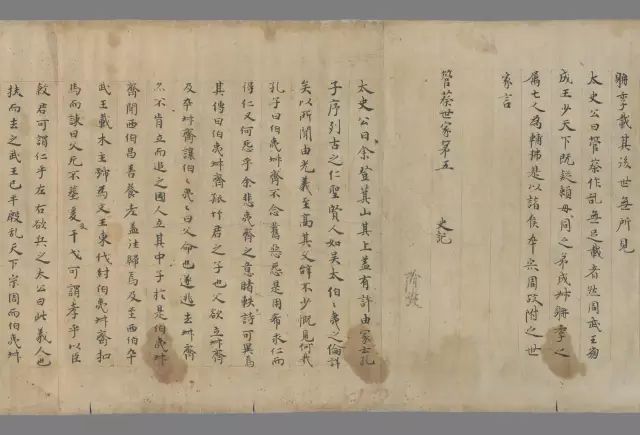 聃季載其後世無所見
太史公曰管蔡作乱無足載者然周武王崩
成王少天下既疑頼母同之弟成叔聃季之
属七人為輔拂是以諸侯卒宗周故附之世
家言
管蔡世家第五 史記
太史公曰余登箕山其上蓋有許由冢士孔
子序列古之仁聖賢人如吴太伯〻夷之倫詳
矣以所聞由光義至高其文辞不少概見何哉
孔子曰伯夷叔齊不念舊悪怨是用希求仁而
得仁又何怨乎余悲夷齊之意睹軼詩可異焉
其傳曰伯夷叔齊孤竹君之子也父欲立叔齊
及卒叔齊讓伯〻夷〻曰父命也遂逃去叔齊
亦不肯立而逃之國人立其中子於是伯夷叔
齊聞西伯昌善養老盍往歸焉及至西伯卒
武王載木主号為文王東伐紂伯夷叔齊扣
馬而諫曰父死不葬爰及干戈可謂孝乎以臣
殺君可謂仁乎左右欲兵之太公曰此義人也
扶而去之武王已平殷乱天下宗周而伯夷叔